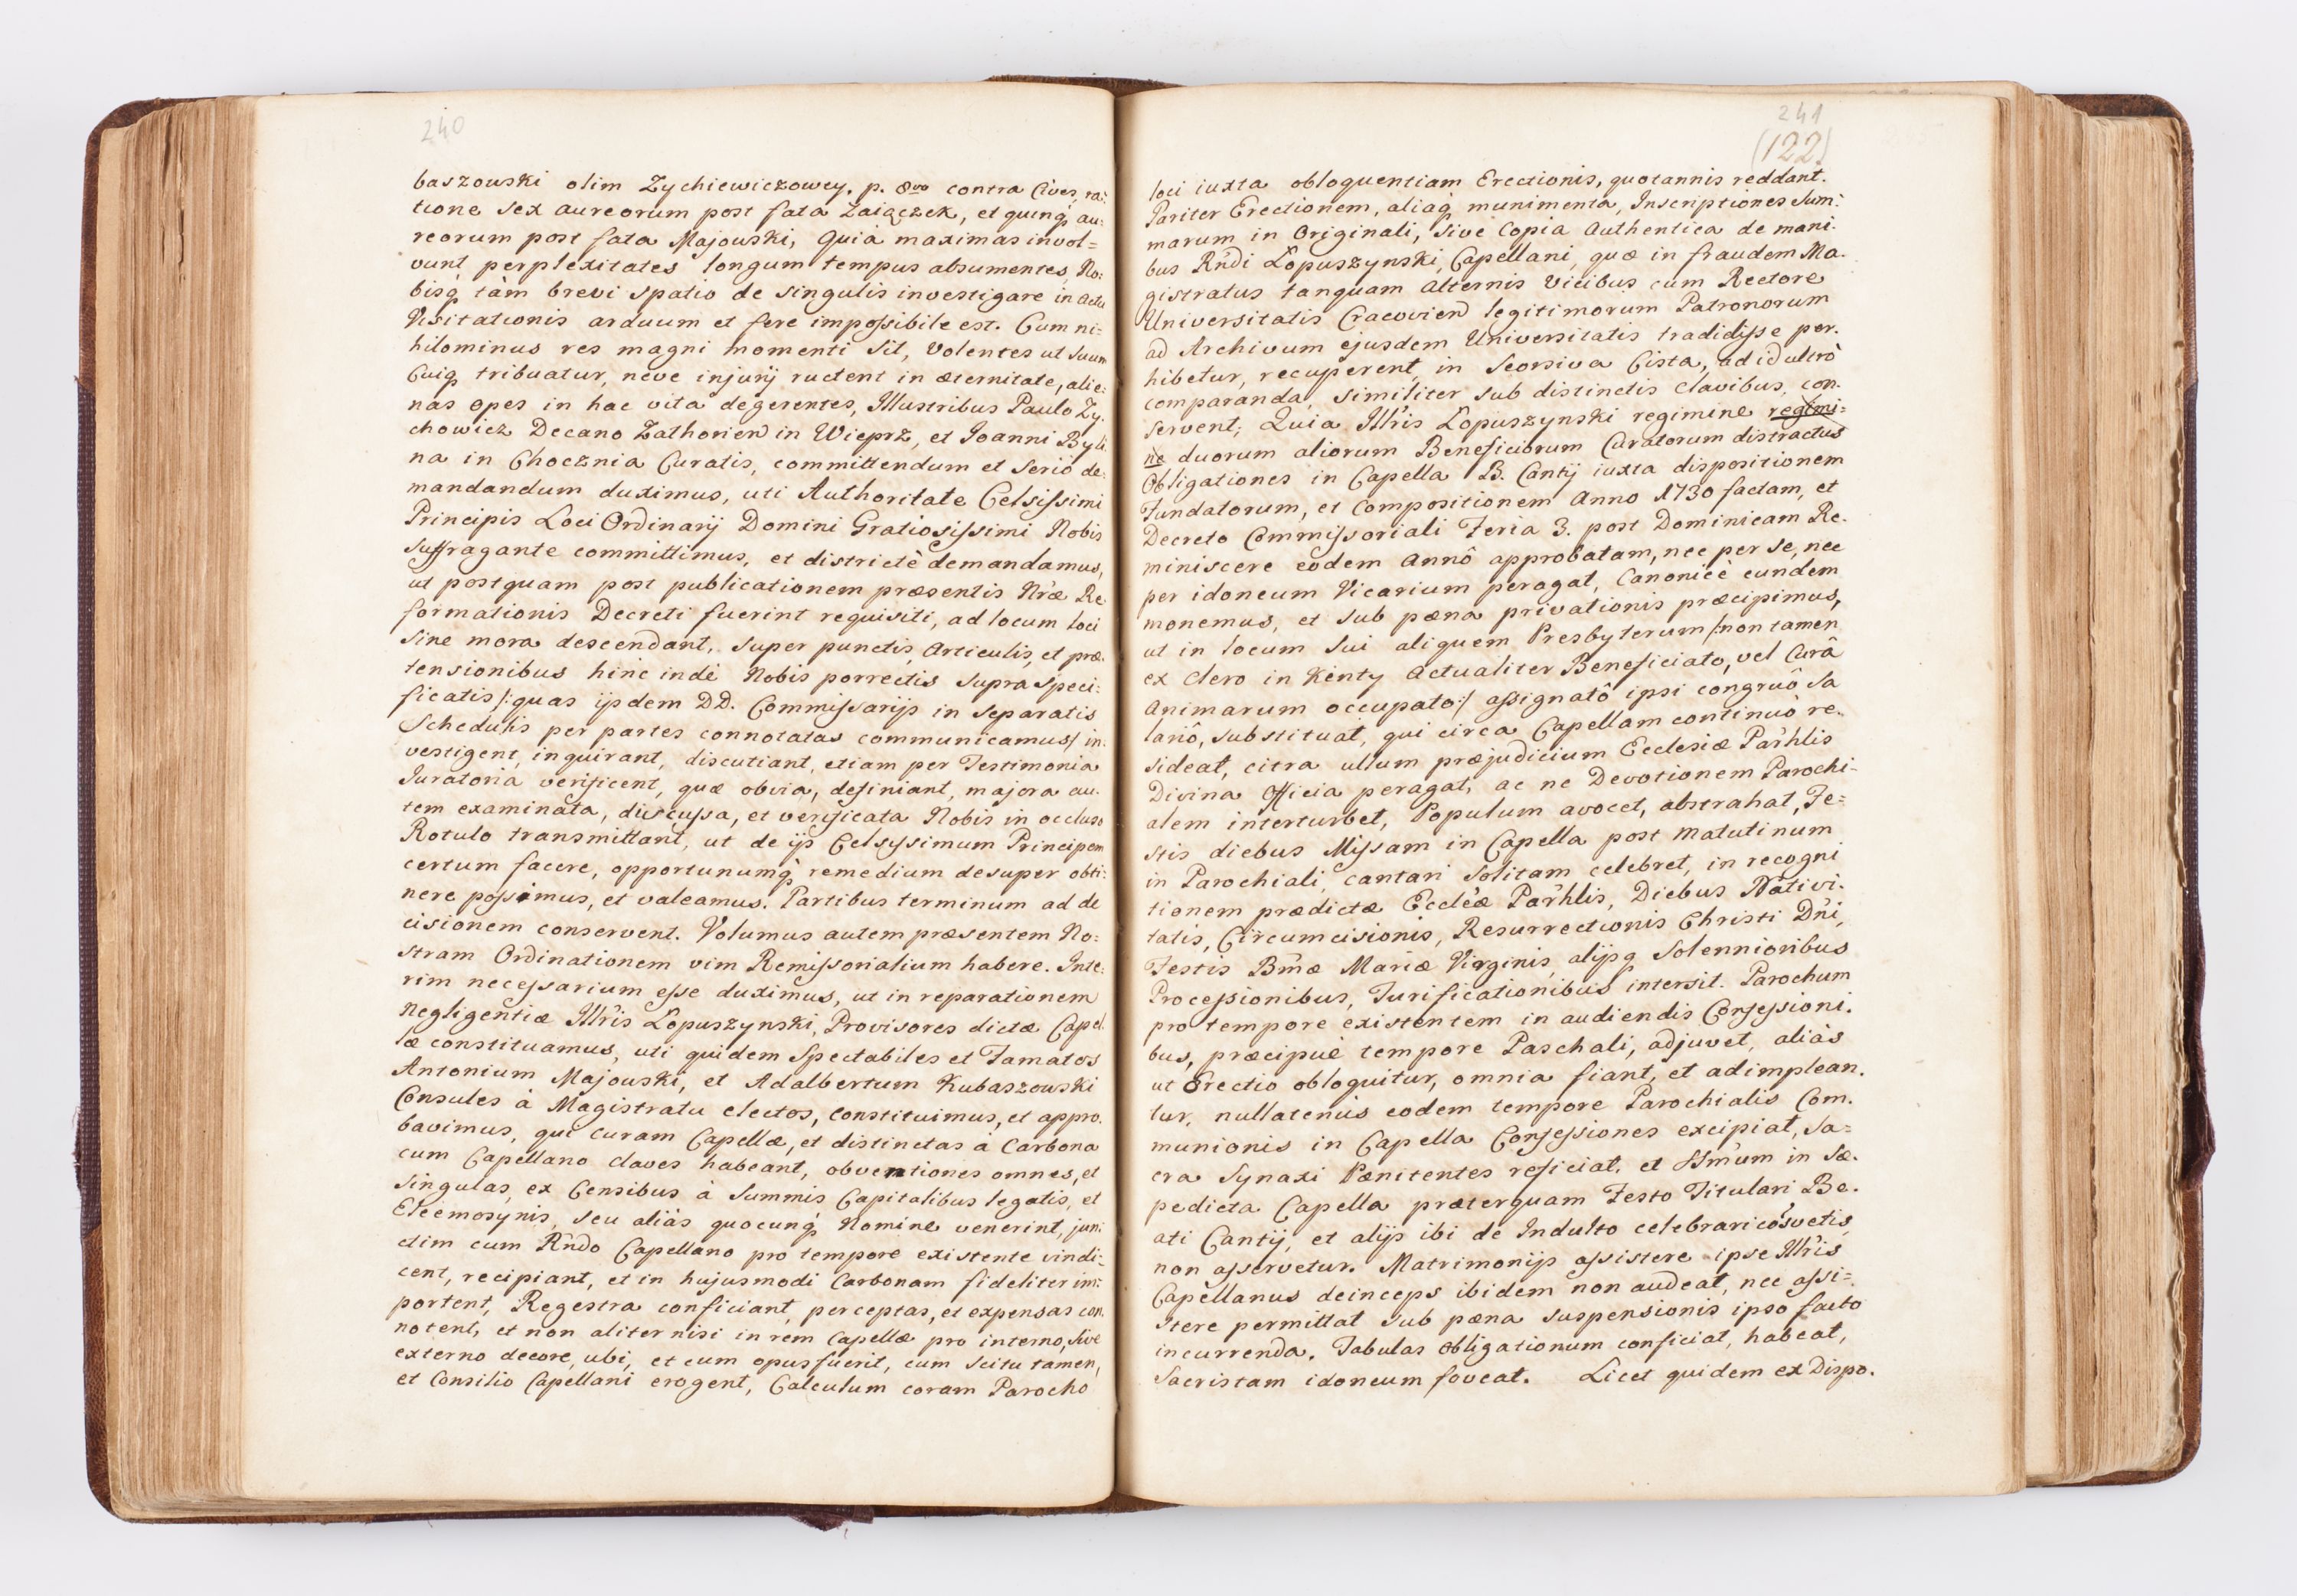 240
baszouski olim Zychiewiczowey. p. 8vo contra Cives, ra:
tione sex aureorum post fata Zaiączek, et quinq́ au:
reorum post fata Majouski, Quia maximas invol=
vunt perplexitates longum tempus absumentes, No:
bisq́ tàm brevi spatio de singulis investigare in actu
Visitationis arduum et fere impossibile est. Cum ni=
hilominus res magni momenti sit, Volentes ut suum
Cuiq́ tribuatur, neve injurij ructent in æternitate, alie:
nas opes in hac vita degerentes, Illustribus Paulo Zy.
chowicz Decano Zathorien in Wieprz, et Joanni Byli
na in Chocznia Curatis, committendum et serio de:
mandandum duximus, uti Authoritate Celsissimi
Principis Loci Ordinarij Domini Gratiosissimi Nobis
suffragante committimus, et districtè demandamus,
ut postquam post publicationem præsentis Nr̃æ Re
formationis Decreti fuerint requisiti, ad locum loci
sine mora descendant, super punctis, Articulis, et præ.
tensionibus hinc indè Nobis porrectis supra speci:
ficatis /:quas ijsdem DD. Commissarijs in separatis
Schedulis per partes connotatas communicamus/ in:
vestigent, inquirant, discutiant, etiam per Testimonia
Juratoria verificent, quæ obvia, definiant, majora au.
tem examinata, discussa, et verificata Nobis in occluso
Rotulo transmittant, ut de ijs Celsissimum Principem
certum facere, opportunumq́ remedium desuper obti:
nere possimus, et valeamus. Partibus terminum ad de
cisionem conservent. Volumus autem præsentem No:
stram Ordinationem vim Remissorialium habere. Inte:
rim necessarium esse duximus, ut in reparationem
Negligentiæ Illr̃is Łopuszynski, Provisores dictæ Capel
læ constituamus, uti quidem Spectabiles et Famatos
Antonium Majouski, et Adalbertum Kubaszouski
Consules à Magistratu electos, constituimus, et appro.
bavimus, qui curam Capellæ, et distinctas à Carbona
cum Capellano claves habeant, obventiones omnes, et
singulas, ex Censibus à Summis Capitalibus legatis, et
Eleemosynis, seu aliàs quocunq́ Nomine venerint, jun:
ctim cum Rñdo Capellano pro tempore existente vindi:
cent, recipiant, et in hujusmodi Carbonam fideliter im:
portent, Regestra conficiant, perceptas, et expensas con.
notent, et non aliter nisi in rem Capellæ pro interno, sive
externo decore, ubi, et cum opus fuerit, cum scitu tamen,
et Consilio Capellani erogent, Calculum coram Parocho
241
(122)
loci iuxta obloquentiam Erectionis, quotannis reddant.
Pariter Erectionem, aliaq́ munimenta, Inscriptiones Sum:
marum in Originali, sive Copia Authentica de mani.
bus Rñdi Łopuszynski, Capellani, quæ in fraudem Ma.
gistratus tanquam alternis Vicibus cum Rectore
Universitatis Cracovien legitimorum Patronorum
ad Archivum ejusdem Universitatis tradidisse per.
hibetur, recuperent, in Seorsiva Cista, ad id ultrò
comparanda, similiter sub distinctis clavibus, con.
servent; Quia Illr̃is Łopuszynski regimine regimi=
ne duorum aliorum Beneficiorum Curatorum distractus
Obligationes in Capella B. Cantij iuxta dispositionem
Fundatorum, et Compositionem Anno 1730 factam, et
Decreto Commissoriali Feria 3. post Dominicam Re.
miniscere eodem Annô approbatam, nec per se, nec
per idoneum Vicarium peragat, Canonicè eundem
monemus, et sub pæna privationis præcipimus,
ut in locum sui aliquem Presbyterum /:non tamen
ex Clero in Kenty Actualiter Beneficiato, vel Curâ
Animarum occupato:/ assignatô ipsi congruô sa
lariô, substituat, qui circa Capellam continuò re.
sideat, citra ullum præjudicium Ecclesiæ Par̃hlis
Divina Officia peragat, ac ne Devotionem Parochi-
alem interturbet, Populum avocet, abstrahat, Fe=
stis diebus Missam in Capella post Matutinum
in Parochiali, cantari solitam celebret, in recogni
tionem prædictæ Ecclẽæ Par̃hlis, Diebus Nativi.
tatis, Circumcisionis, Resurrectionis Christi Dñi,
Festis Bm̃æ Mariæ Virginis, alijsq́ Solennioribus
Processionibus, Turificationibus intersit. Parochum
pro tempore existentem in audiendis Confessioni.
bus, præcipuè tempore Paschali, adjuvet, aliàs
ut Erectio obloquitur, omnia fiant, et adimplean.
tur, nullatenùs eodem tempore Parochialis Com.
munionis in Capella Confessiones excipiat, Sa=
cra Synaxi Pænitentes reficiat, et SSm̃um in Sæ.
pedicta Capella præterquam Festo Titulari Be.
ati Cantij, et alijs ibi de Indulto celebrari cõsvetis,
non asservetur. Matrimonijs assistere ipse Illr̃is
Capellanus deinceps ibidem non audeat, nec assi=
stere permittat sub pæna suspensionis ipso facto
incurrenda. Tabulas Obligationum conficiat, habeat,
Sacristam idoneum foveat. Licet quidem ex Dispo.